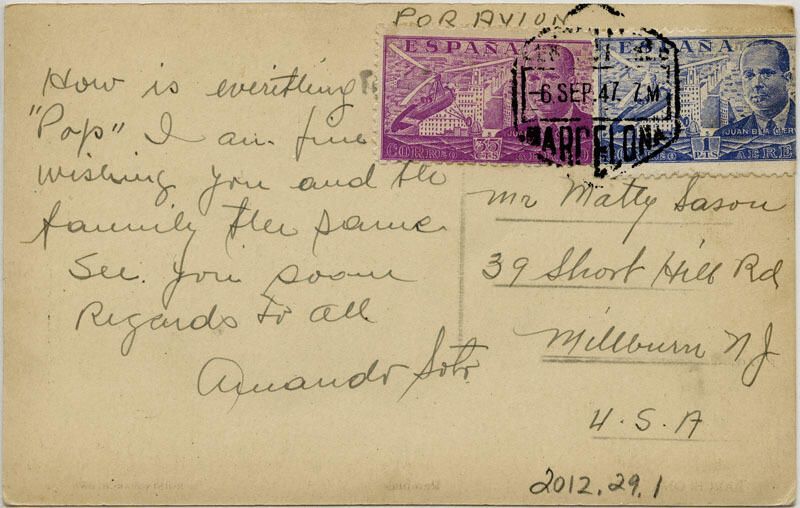 POR AVION
ESPAÑA
ESPAÑA
-6.SEP.47. 7.M
BARCELONA
CORREO 35 CTS AEREO
CORREO 1 PTS AEREO
JUAN DE LA CIERVA
How is everithing
"Pop" I am fine
wishing you and the
familly the same
See you soon
Regards to all
Amando Soto
Mr Matty Sason
39 Short Hill Rd
Millburn NJ
U.S.A
2012.29.1